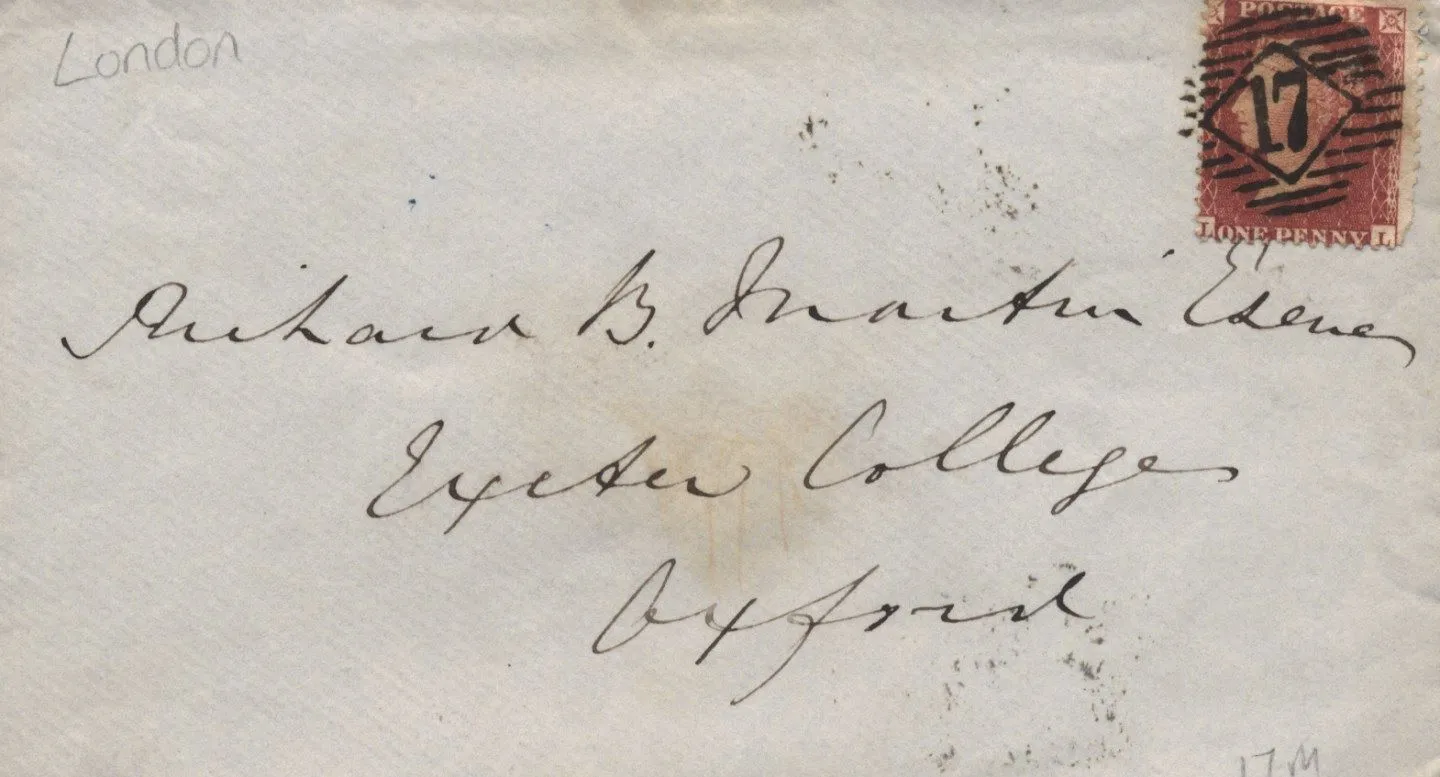 London
POSTAGE
17
L ONE PENNY L
Richard B. Martin Esqre
Exeter College
Oxford
17 M